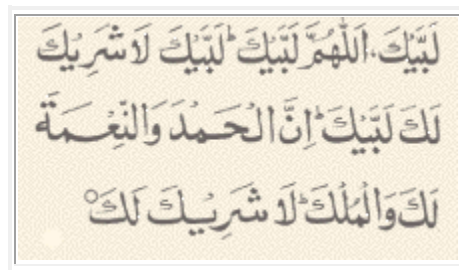 لَبَّيْكَ۔ اَللّٰهُمَّ لَبَّيْكَ ؕ لَبَّيْكَ لَا شَرِيْكَ
لَكَ لَبَّيْكَ ؕ اِنَّ الْحَمْدَ وَالنِّعْمَةَ
لَكَ وَالْمُلْكَ ؕ لَا شَرِيْكَ لَكَ ۟